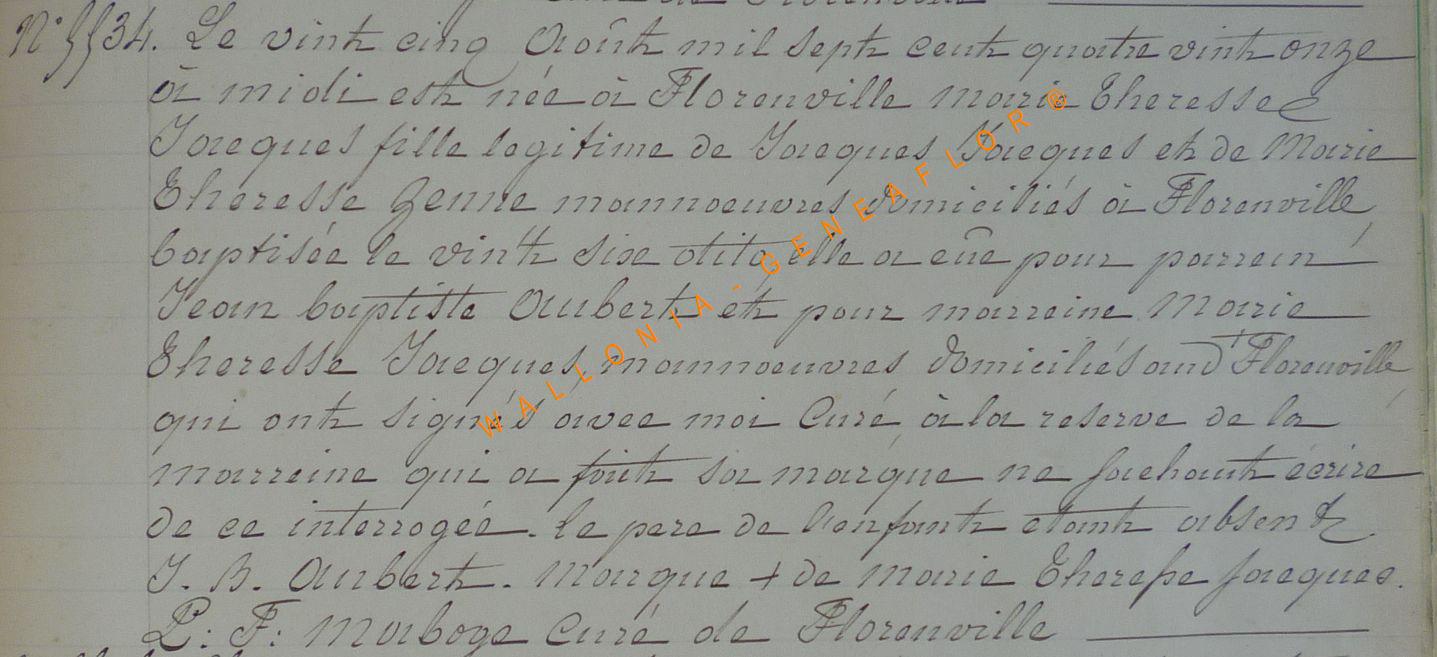 N° 5534. Le vint cinq Août mil sept cent quatre vint onze
à midi est née à Florenville marie Theresse
Jacques fille legitime de Jacques Jacques et de Marie
Theresse Zenne mannoeuvres domiciliés à Florenville
baptisée le vint six dito, elle a eûe pour parrein
Jean baptiste Aubert et pour marreine Marie
Theresse Jacques, mannoeuvres domiciliés aud^t Florenville
qui ont signés avec moi Curé, à la reserve de la
marreine qui a fait sa marque ne sachant écrire
de ce interrogée. le pere de l'enfant etant absent
J. B. Aubert. Marque + de marie Theresse Jacques.
P: F: Maboge Curé de Florenville
WALLONIA-GENEAFLOR©